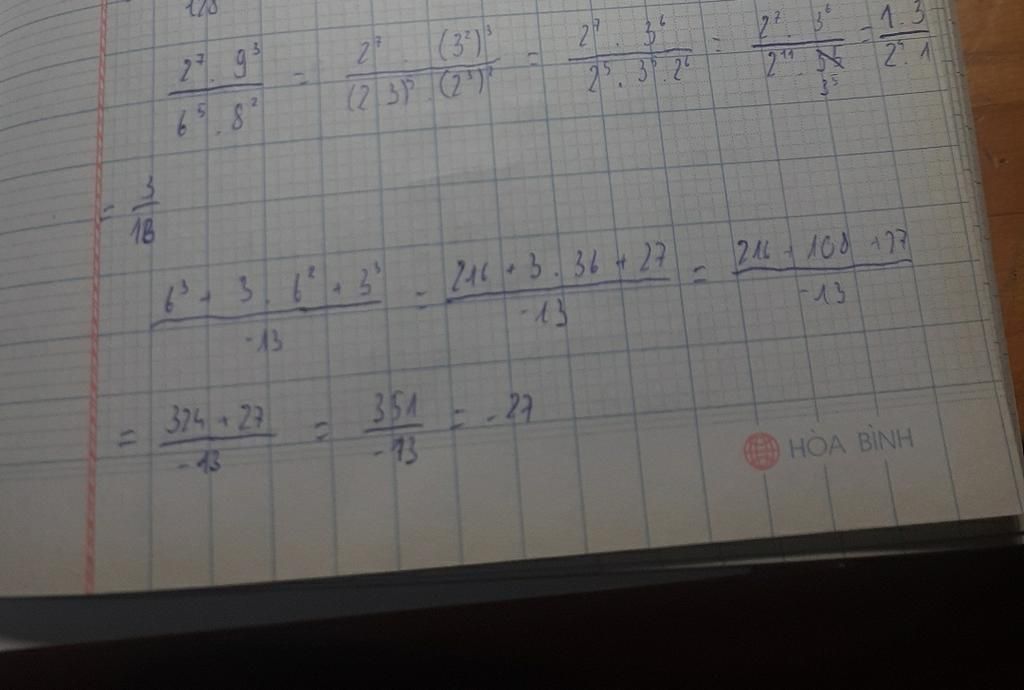 128
2⁷ . 9³ / 6⁵ . 8² = 2⁷ . (3²)³ / (2 3)⁵ . (2³)² = 2⁷ . 3⁶ / 2⁵ . 3⁵ . 2⁶ = 2⁷ . 3⁶ / 2¹¹ . 3⁵ = 1 . 3 / 2⁴ . 1
= 3 / 16
6³ + 3 . 6² + 3³ / -13 = 216 + 3 . 36 + 27 / -13 = 216 + 108 + 27 / -13
= 324 + 27 / -13 = 351 / -13 = -27
HÒA BÌNH